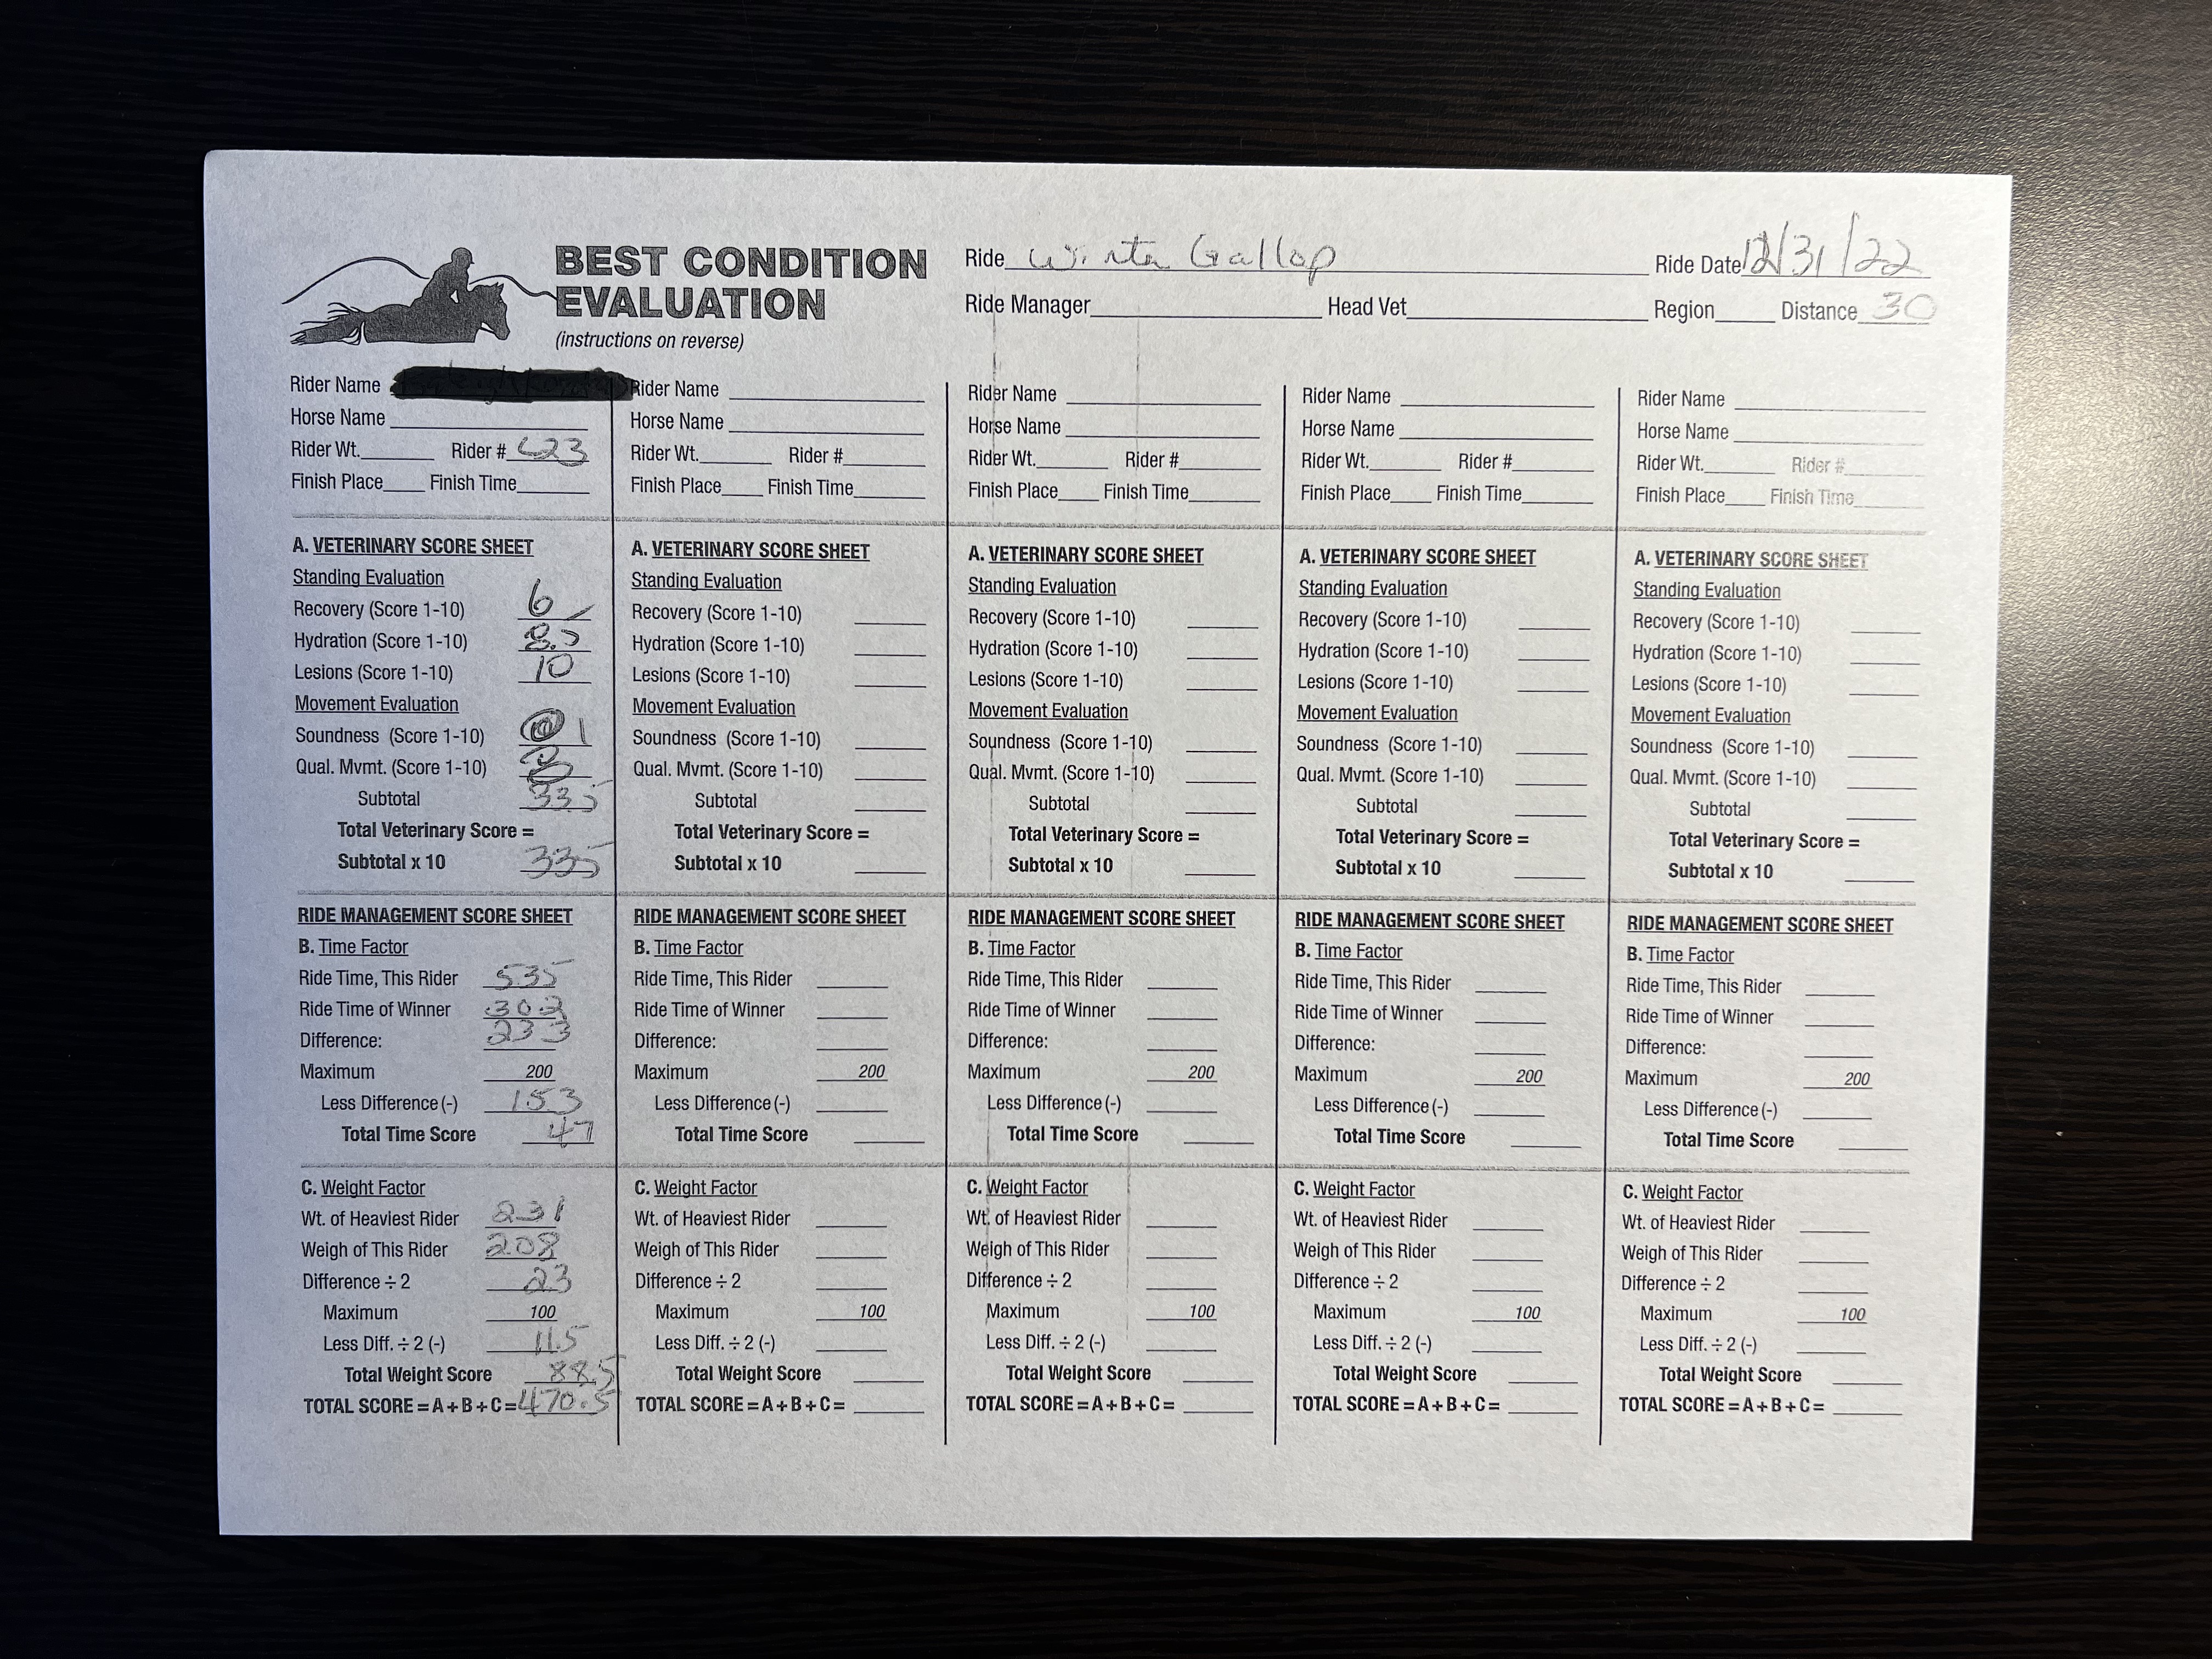 BEST CONDITION
EVALUATION
(instructions on reverse)
Ride Winter Gallop Ride Date 12/31/22
Ride Manager Head Vet Region Distance 30
Rider Name
Horse Name
Rider Wt. Rider # 623
Finish Place Finish Time
A. VETERINARY SCORE SHEET
Standing Evaluation
Recovery (Score 1-10) 6
Hydration (Score 1-10) 8.5
Lesions (Score 1-10) 10
Movement Evaluation
Soundness (Score 1-10) 1
Qual. Mvmt. (Score 1-10)
Subtotal 33.5
Total Veterinary Score =
Subtotal x 10 335
RIDE MANAGEMENT SCORE SHEET
B. Time Factor
Ride Time, This Rider 535
Ride Time of Winner 302
Difference: 233
Maximum 200
Less Difference (-) 153
Total Time Score 47
C. Weight Factor
Wt. of Heaviest Rider 231
Weigh of This Rider 208
Difference ÷ 2 23
Maximum 100
Less Diff. ÷ 2 (-) 11.5
Total Weight Score 88.5
TOTAL SCORE = A + B + C = 470.5
Rider Name
Horse Name
Rider Wt. Rider #
Finish Place Finish Time
A. VETERINARY SCORE SHEET
Standing Evaluation
Recovery (Score 1-10)
Hydration (Score 1-10)
Lesions (Score 1-10)
Movement Evaluation
Soundness (Score 1-10)
Qual. Mvmt. (Score 1-10)
Subtotal
Total Veterinary Score =
Subtotal x 10
RIDE MANAGEMENT SCORE SHEET
B. Time Factor
Ride Time, This Rider
Ride Time of Winner
Difference:
Maximum 200
Less Difference (-)
Total Time Score
C. Weight Factor
Wt. of Heaviest Rider
Weigh of This Rider
Difference ÷ 2
Maximum 100
Less Diff. ÷ 2 (-)
Total Weight Score
TOTAL SCORE = A + B + C =
Rider Name
Horse Name
Rider Wt. Rider #
Finish Place Finish Time
A. VETERINARY SCORE SHEET
Standing Evaluation
Recovery (Score 1-10)
Hydration (Score 1-10)
Lesions (Score 1-10)
Movement Evaluation
Soundness (Score 1-10)
Qual. Mvmt. (Score 1-10)
Subtotal
Total Veterinary Score =
Subtotal x 10
RIDE MANAGEMENT SCORE SHEET
B. Time Factor
Ride Time, This Rider
Ride Time of Winner
Difference:
Maximum 200
Less Difference (-)
Total Time Score
C. Weight Factor
Wt. of Heaviest Rider
Weigh of This Rider
Difference ÷ 2
Maximum 100
Less Diff. ÷ 2 (-)
Total Weight Score
TOTAL SCORE = A + B + C =
Rider Name
Horse Name
Rider Wt. Rider #
Finish Place Finish Time
A. VETERINARY SCORE SHEET
Standing Evaluation
Recovery (Score 1-10)
Hydration (Score 1-10)
Lesions (Score 1-10)
Movement Evaluation
Soundness (Score 1-10)
Qual. Mvmt. (Score 1-10)
Subtotal
Total Veterinary Score =
Subtotal x 10
RIDE MANAGEMENT SCORE SHEET
B. Time Factor
Ride Time, This Rider
Ride Time of Winner
Difference:
Maximum 200
Less Difference (-)
Total Time Score
C. Weight Factor
Wt. of Heaviest Rider
Weigh of This Rider
Difference ÷ 2
Maximum 100
Less Diff. ÷ 2 (-)
Total Weight Score
TOTAL SCORE = A + B + C =
Rider Name
Horse Name
Rider Wt. Rider #
Finish Place Finish Time
A. VETERINARY SCORE SHEET
Standing Evaluation
Recovery (Score 1-10)
Hydration (Score 1-10)
Lesions (Score 1-10)
Movement Evaluation
Soundness (Score 1-10)
Qual. Mvmt. (Score 1-10)
Subtotal
Total Veterinary Score =
Subtotal x 10
RIDE MANAGEMENT SCORE SHEET
B. Time Factor
Ride Time, This Rider
Ride Time of Winner
Difference:
Maximum 200
Less Difference (-)
Total Time Score
C. Weight Factor
Wt. of Heaviest Rider
Weigh of This Rider
Difference ÷ 2
Maximum 100
Less Diff. ÷ 2 (-)
Total Weight Score
TOTAL SCORE = A + B + C =